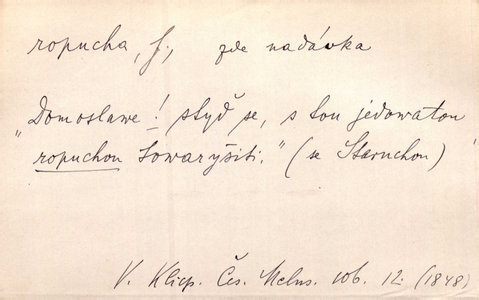 ropucha, f., zde nadávka
„Domoslawe! styď se, s tou jedowatou
ropuchou towaryšiti." (se Staruchou)
V. Klicp. Čes. Meluz. 106. 12. (1848)